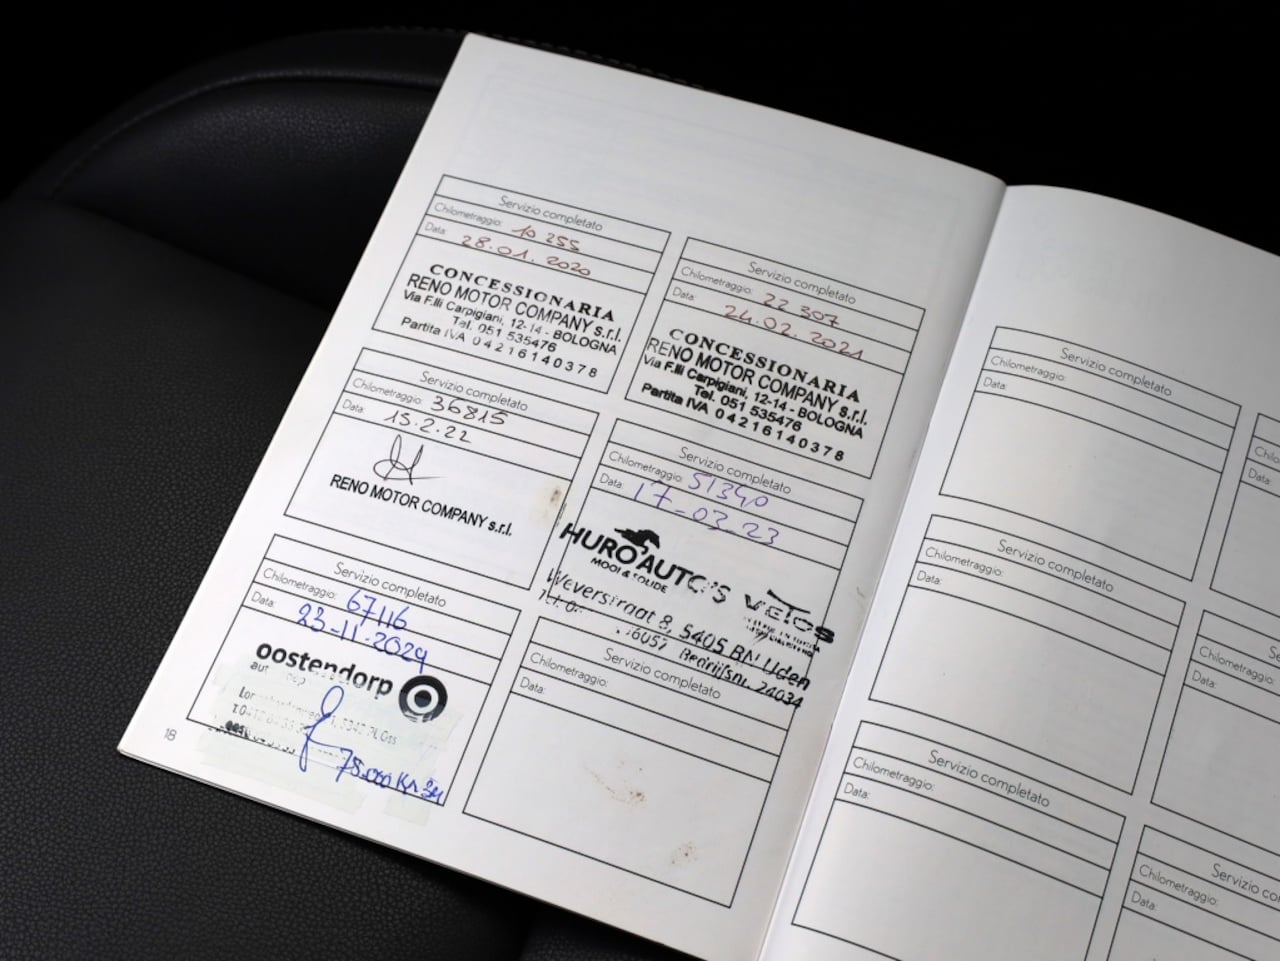 Servizio completato
Chilometraggio: 10 255
Data: 28.01.2020
CONCESSIONARIA
RENO MOTOR COMPANY s.r.l.
Via F.lli Carpigiani, 12-14 - BOLOGNA
Tel. 051 535476
Partita IVA 04216140378
Servizio completato
Chilometraggio: 22 307
Data: 24.02.2021
CONCESSIONARIA
RENO MOTOR COMPANY s.r.l.
Via F.lli Carpigiani, 12-14 - BOLOGNA
Tel. 051 535476
Partita IVA 04216140378
Servizio completato
Chilometraggio: 36815
Data: 15.2.22
RENO MOTOR COMPANY s.r.l.
Servizio completato
Chilometraggio: 51340
Data: 17-03-23
HURO AUTO'S
MOOI & SOLIDE
VETOS
Weverstraat 8, 5405 BN Uden
Bedrijfsnr. 24034
Servizio completato
Chilometraggio: 67116
Data: 23-11-2024
oostendorp
Oss
75.000 Km
Servizio completato
Chilometraggio:
Data:
18
Servizio completato
Chilometraggio:
Data:
Servizio completato
Chilometraggio:
Data:
Servizio completato
Chilometraggio:
Data:
Chilometraggio:
Data:
Servizio
Chilometraggio:
Data: